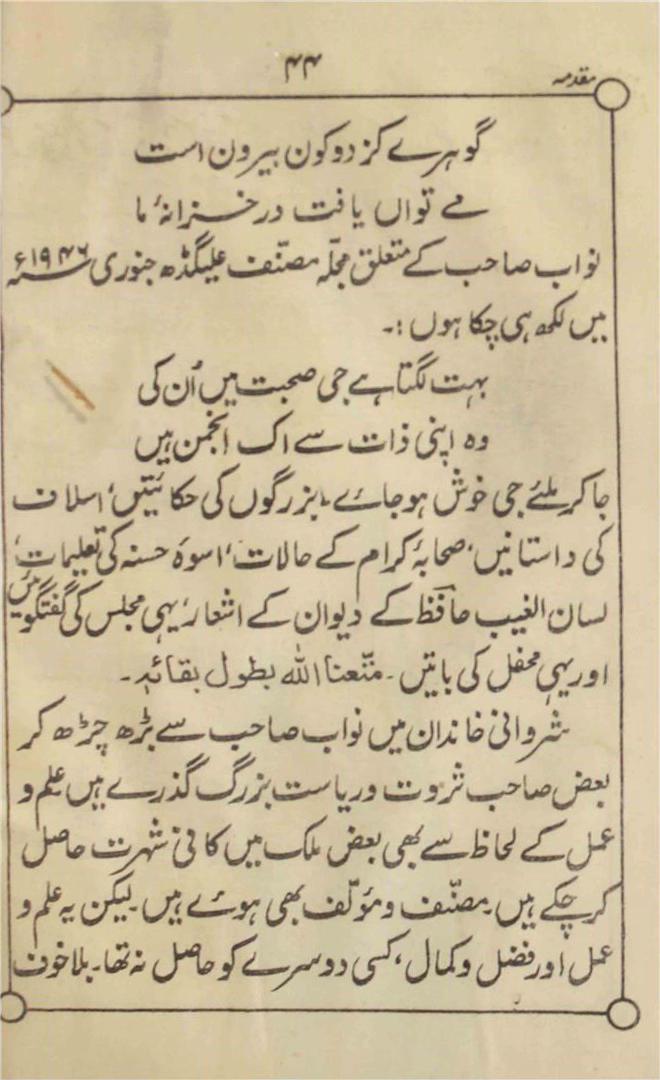 مقدمہ
۴۴
گوہرے کز دو کون بیرون است
مے تواں یافت در خزانۂ ما
نواب صاحب کے متعلق مجلّہ مصنّف علیگڈھ جنوری ۱۹۴۶ء
میں لکھ ہی چکا ہوں :۔
بہت لگتا ہے جی صحبت میں اُن کی
وہ اپنی ذات سے اک انجمن ہیں
جا کر ملئے جی خوش ہو جائے۔ بزرگوں کی حکائتیں، اسلاف
کی داستانیں، صحابۂ کرام کے حالات، اسوۂ حسنہ کی تعلیمات،
لسان الغیب حافظؔ کے دیوان کے اشعار، یہی مجلس کی گفتگوئیں
اور یہی محفل کی باتیں۔ متّعنا اللہ بطول بقائہٖ۔
شروانی خاندان میں نواب صاحب سے بڑھ چڑھ کر
بعض صاحب ثروت و ریاست بزرگ گذرے ہیں علم و
عمل کے لحاظ سے بھی بعض ملک میں کافی شہرت حاصل
کر چکے ہیں۔ مصنّف و مؤلّف بھی ہوئے ہیں۔ لیکن یہ علم و
عمل اور فضل و کمال، کسی دوسرے کو حاصل نہ تھا۔ بلا خوف